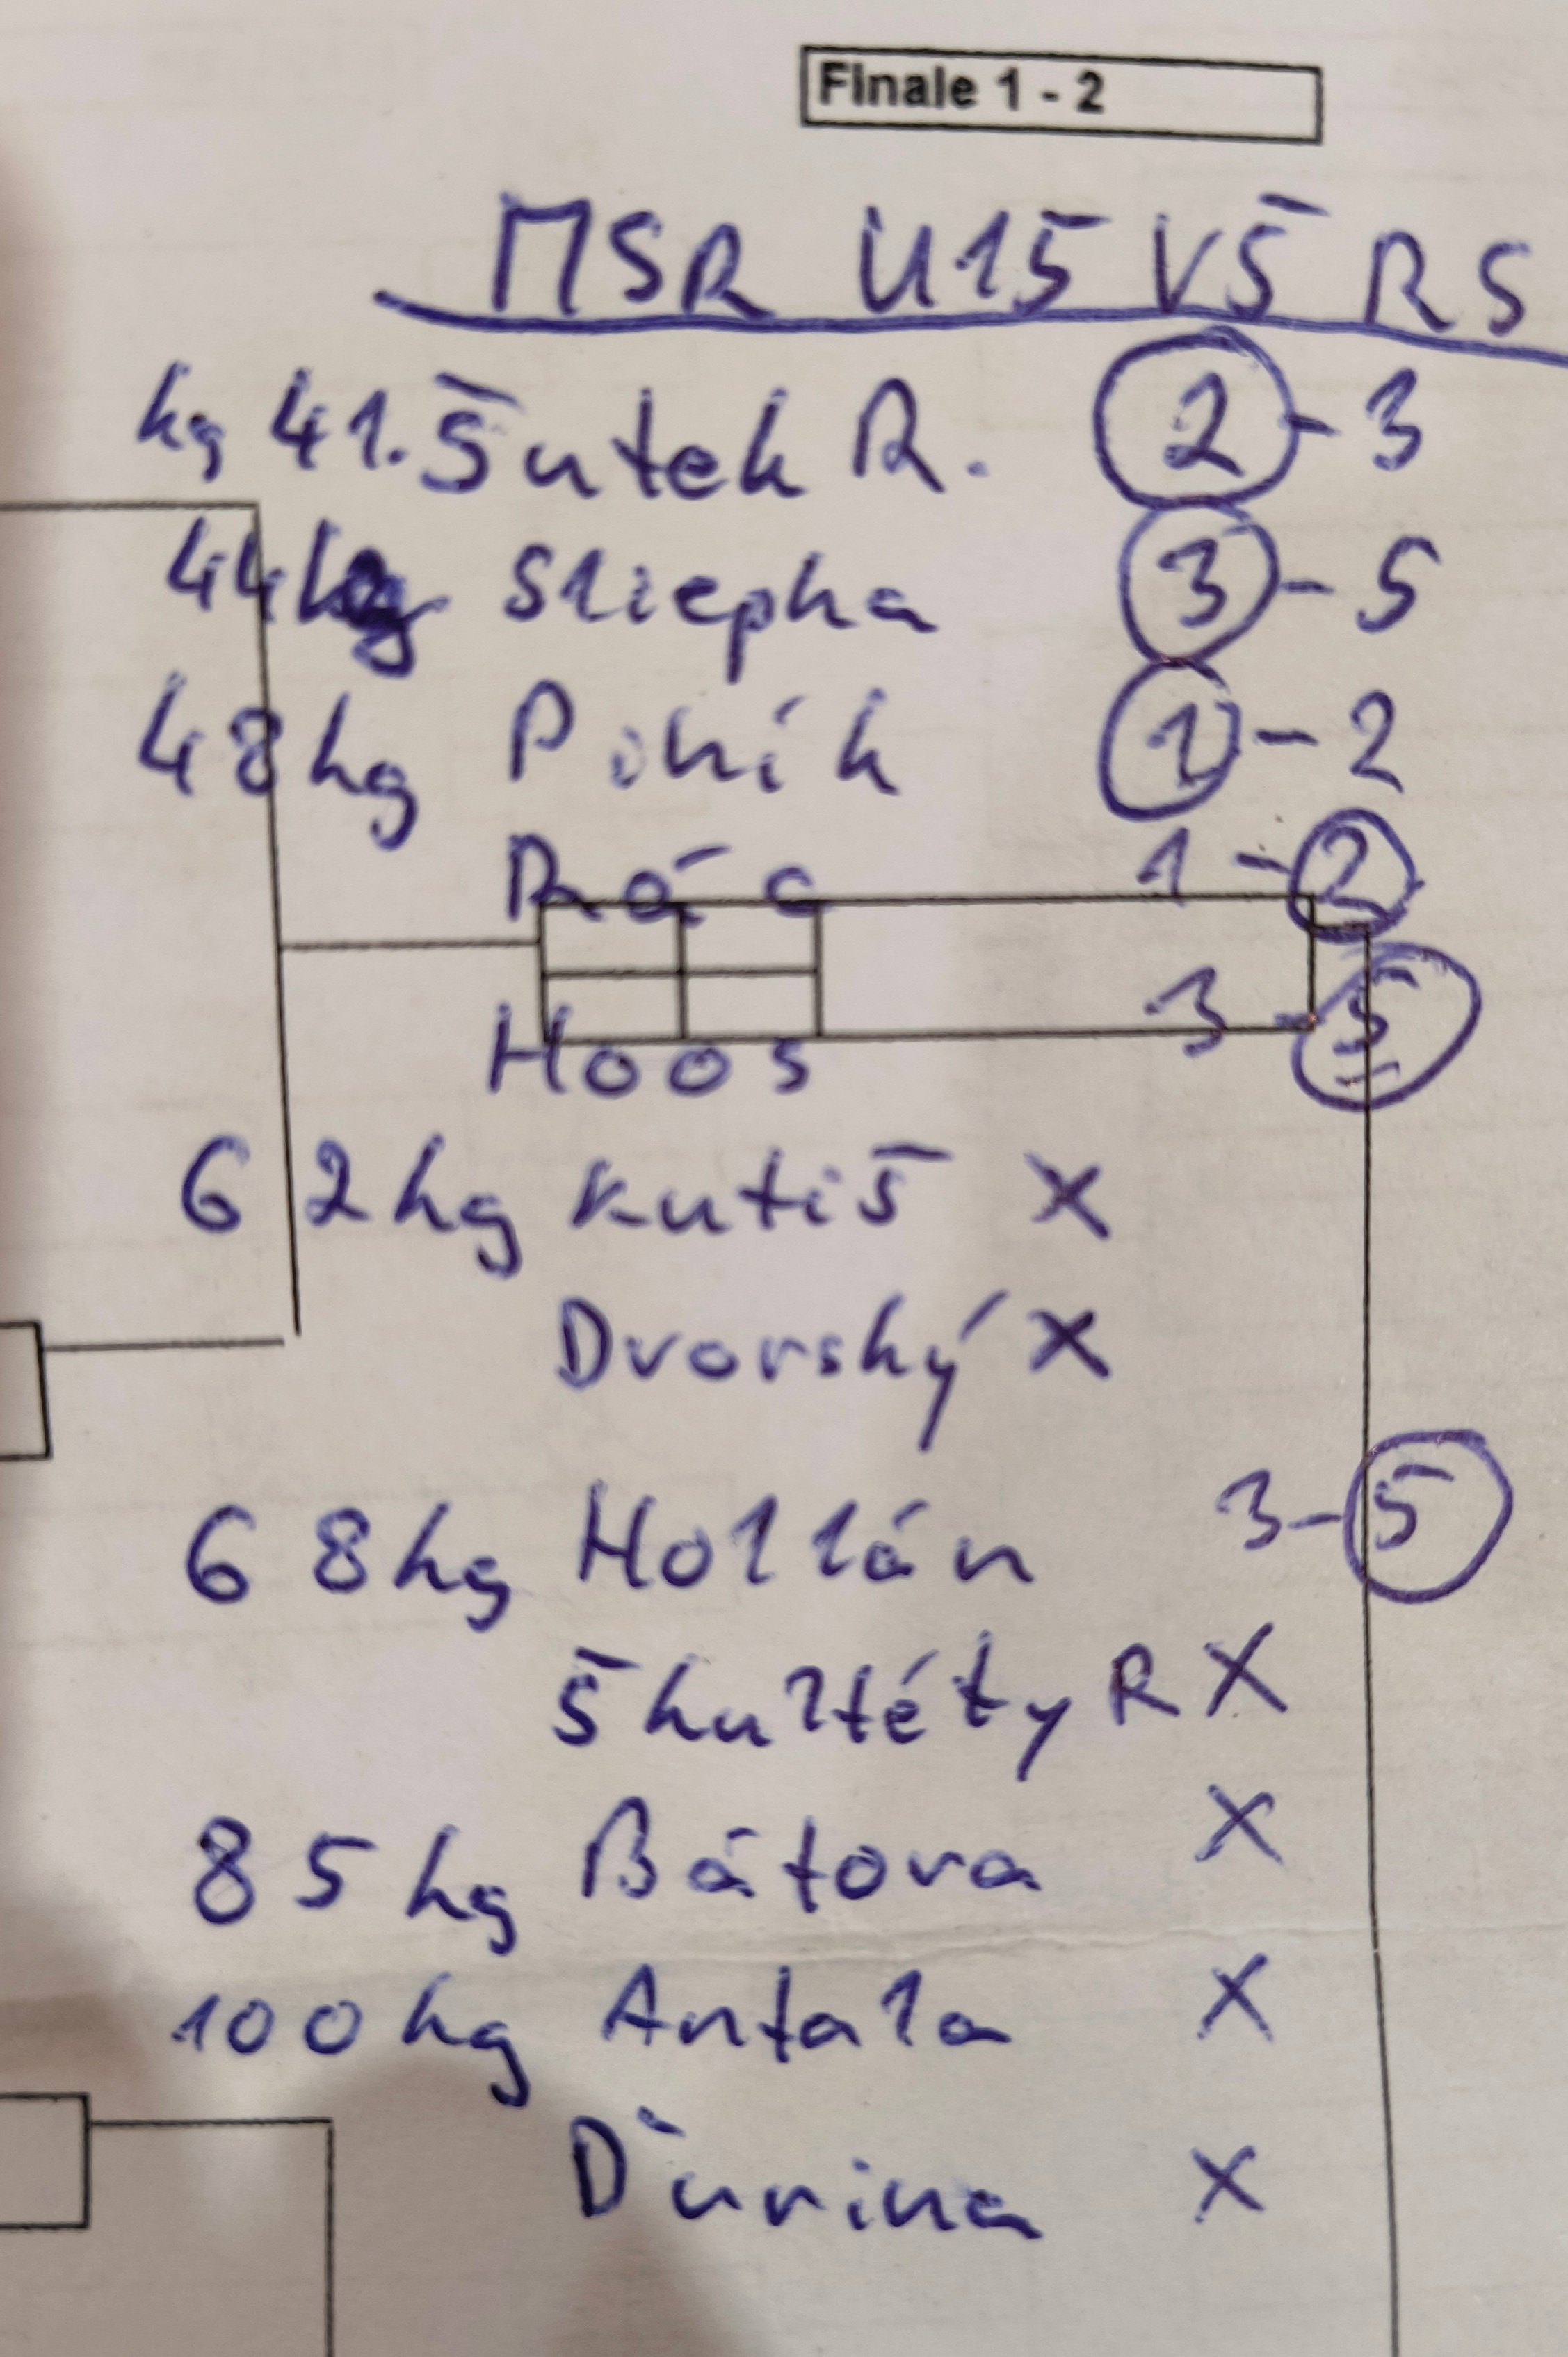 Finale 1 - 2
MSR U15 VŠ RS
kg 41. Šutek R. 2 - 3
44kg Sliepka 3 - 5
48kg Piník 1 - 2
Rác 1 - 2
Hoos 3 - 5
62kg Kutiš X
Dvorský X
68kg Hollán 3 - 5
Škultéty R X
85kg Bátova X
100kg Antala X
Ďurina X